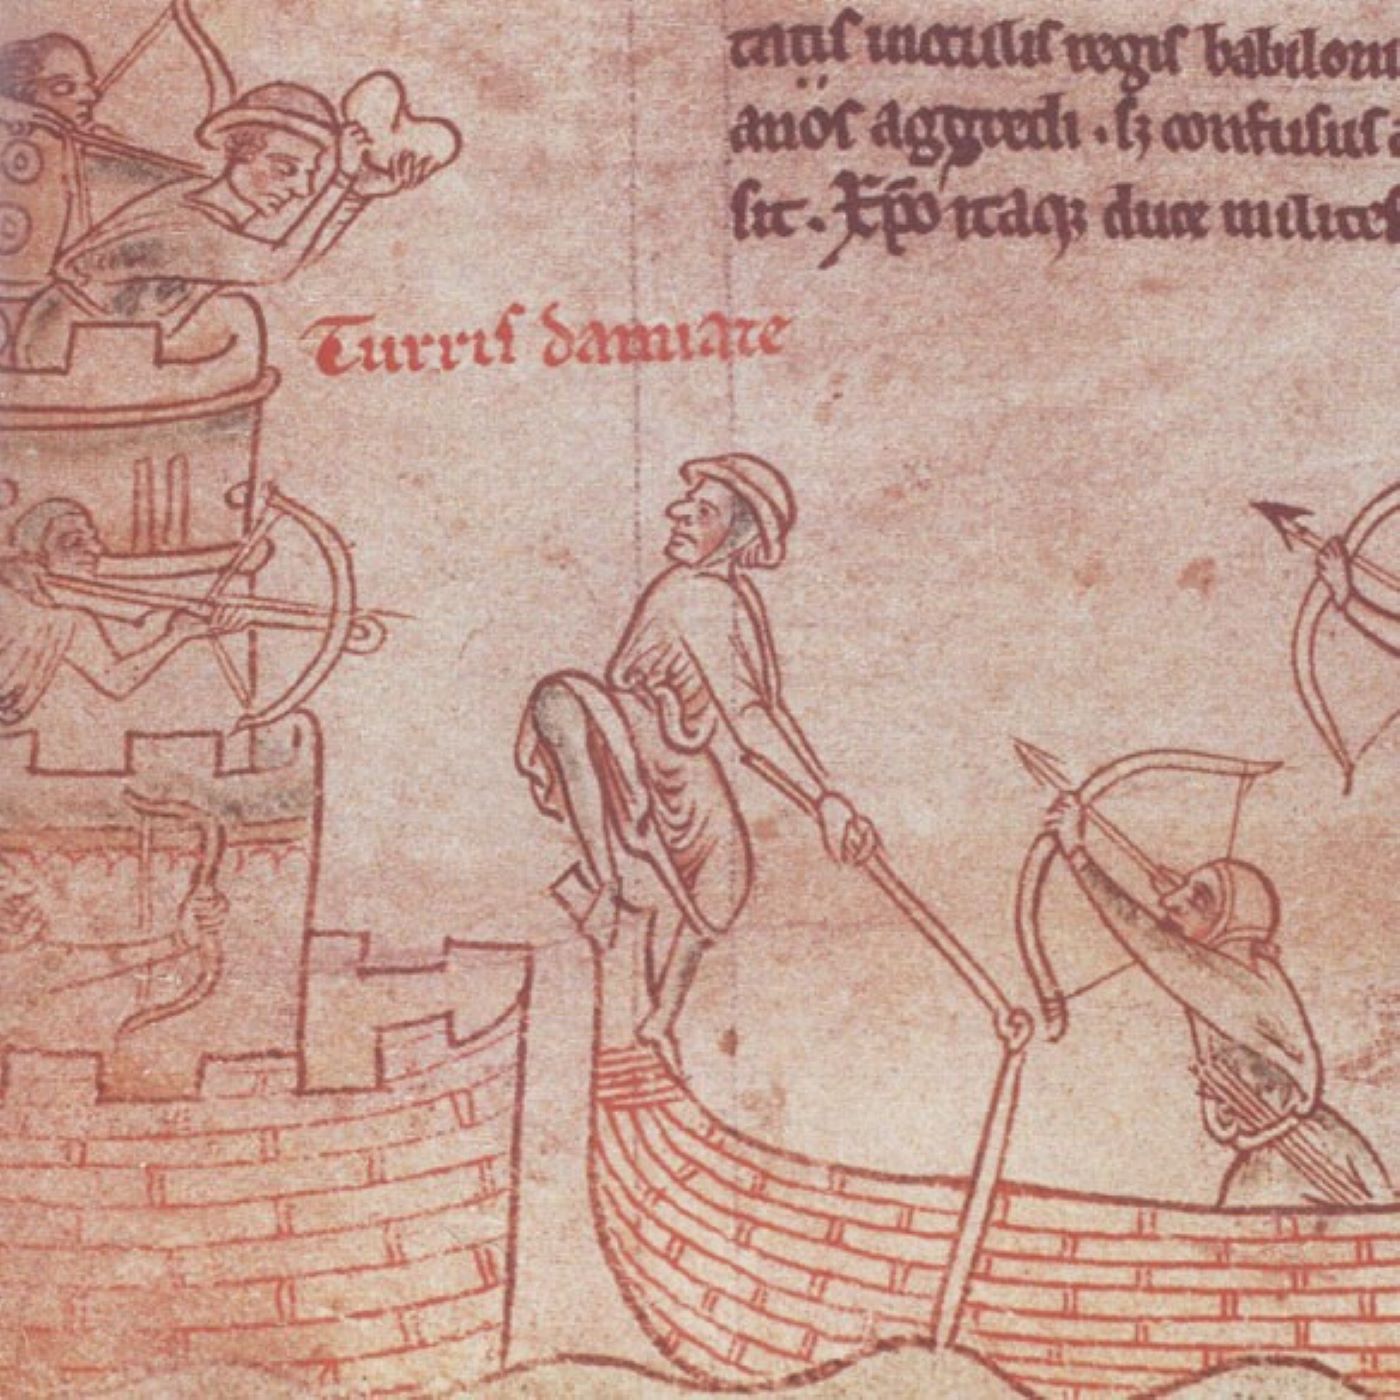 tatis incculis regis babilom
anos aggredi · sꝫ confusus
sit · Xp̄o itaqꝫ duce milites
Turris damiate